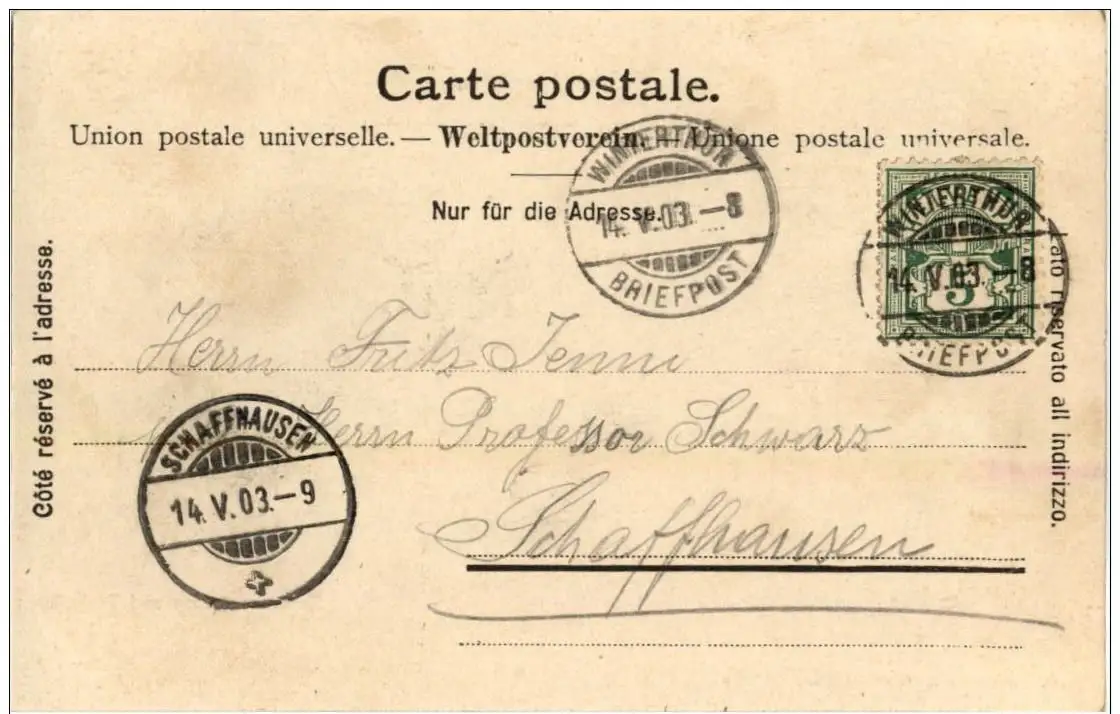 Carte postale.
Union postale universelle. — Weltpostverein. — Unione postale universale.
Nur für die Adresse.
WINTERTHUR
14. V. 03. – 8
BRIEFPOST
WINTERTHUR
14. V. 03. – 8
BRIEFPOST
5
Côté réservé à l'adresse.
ato riservato all indirizzo.
Herrn Fritz Jenni
Herrn Professor Schwarz
Schaffhausen
SCHAFFHAUSEN
14. V. 03. – 9